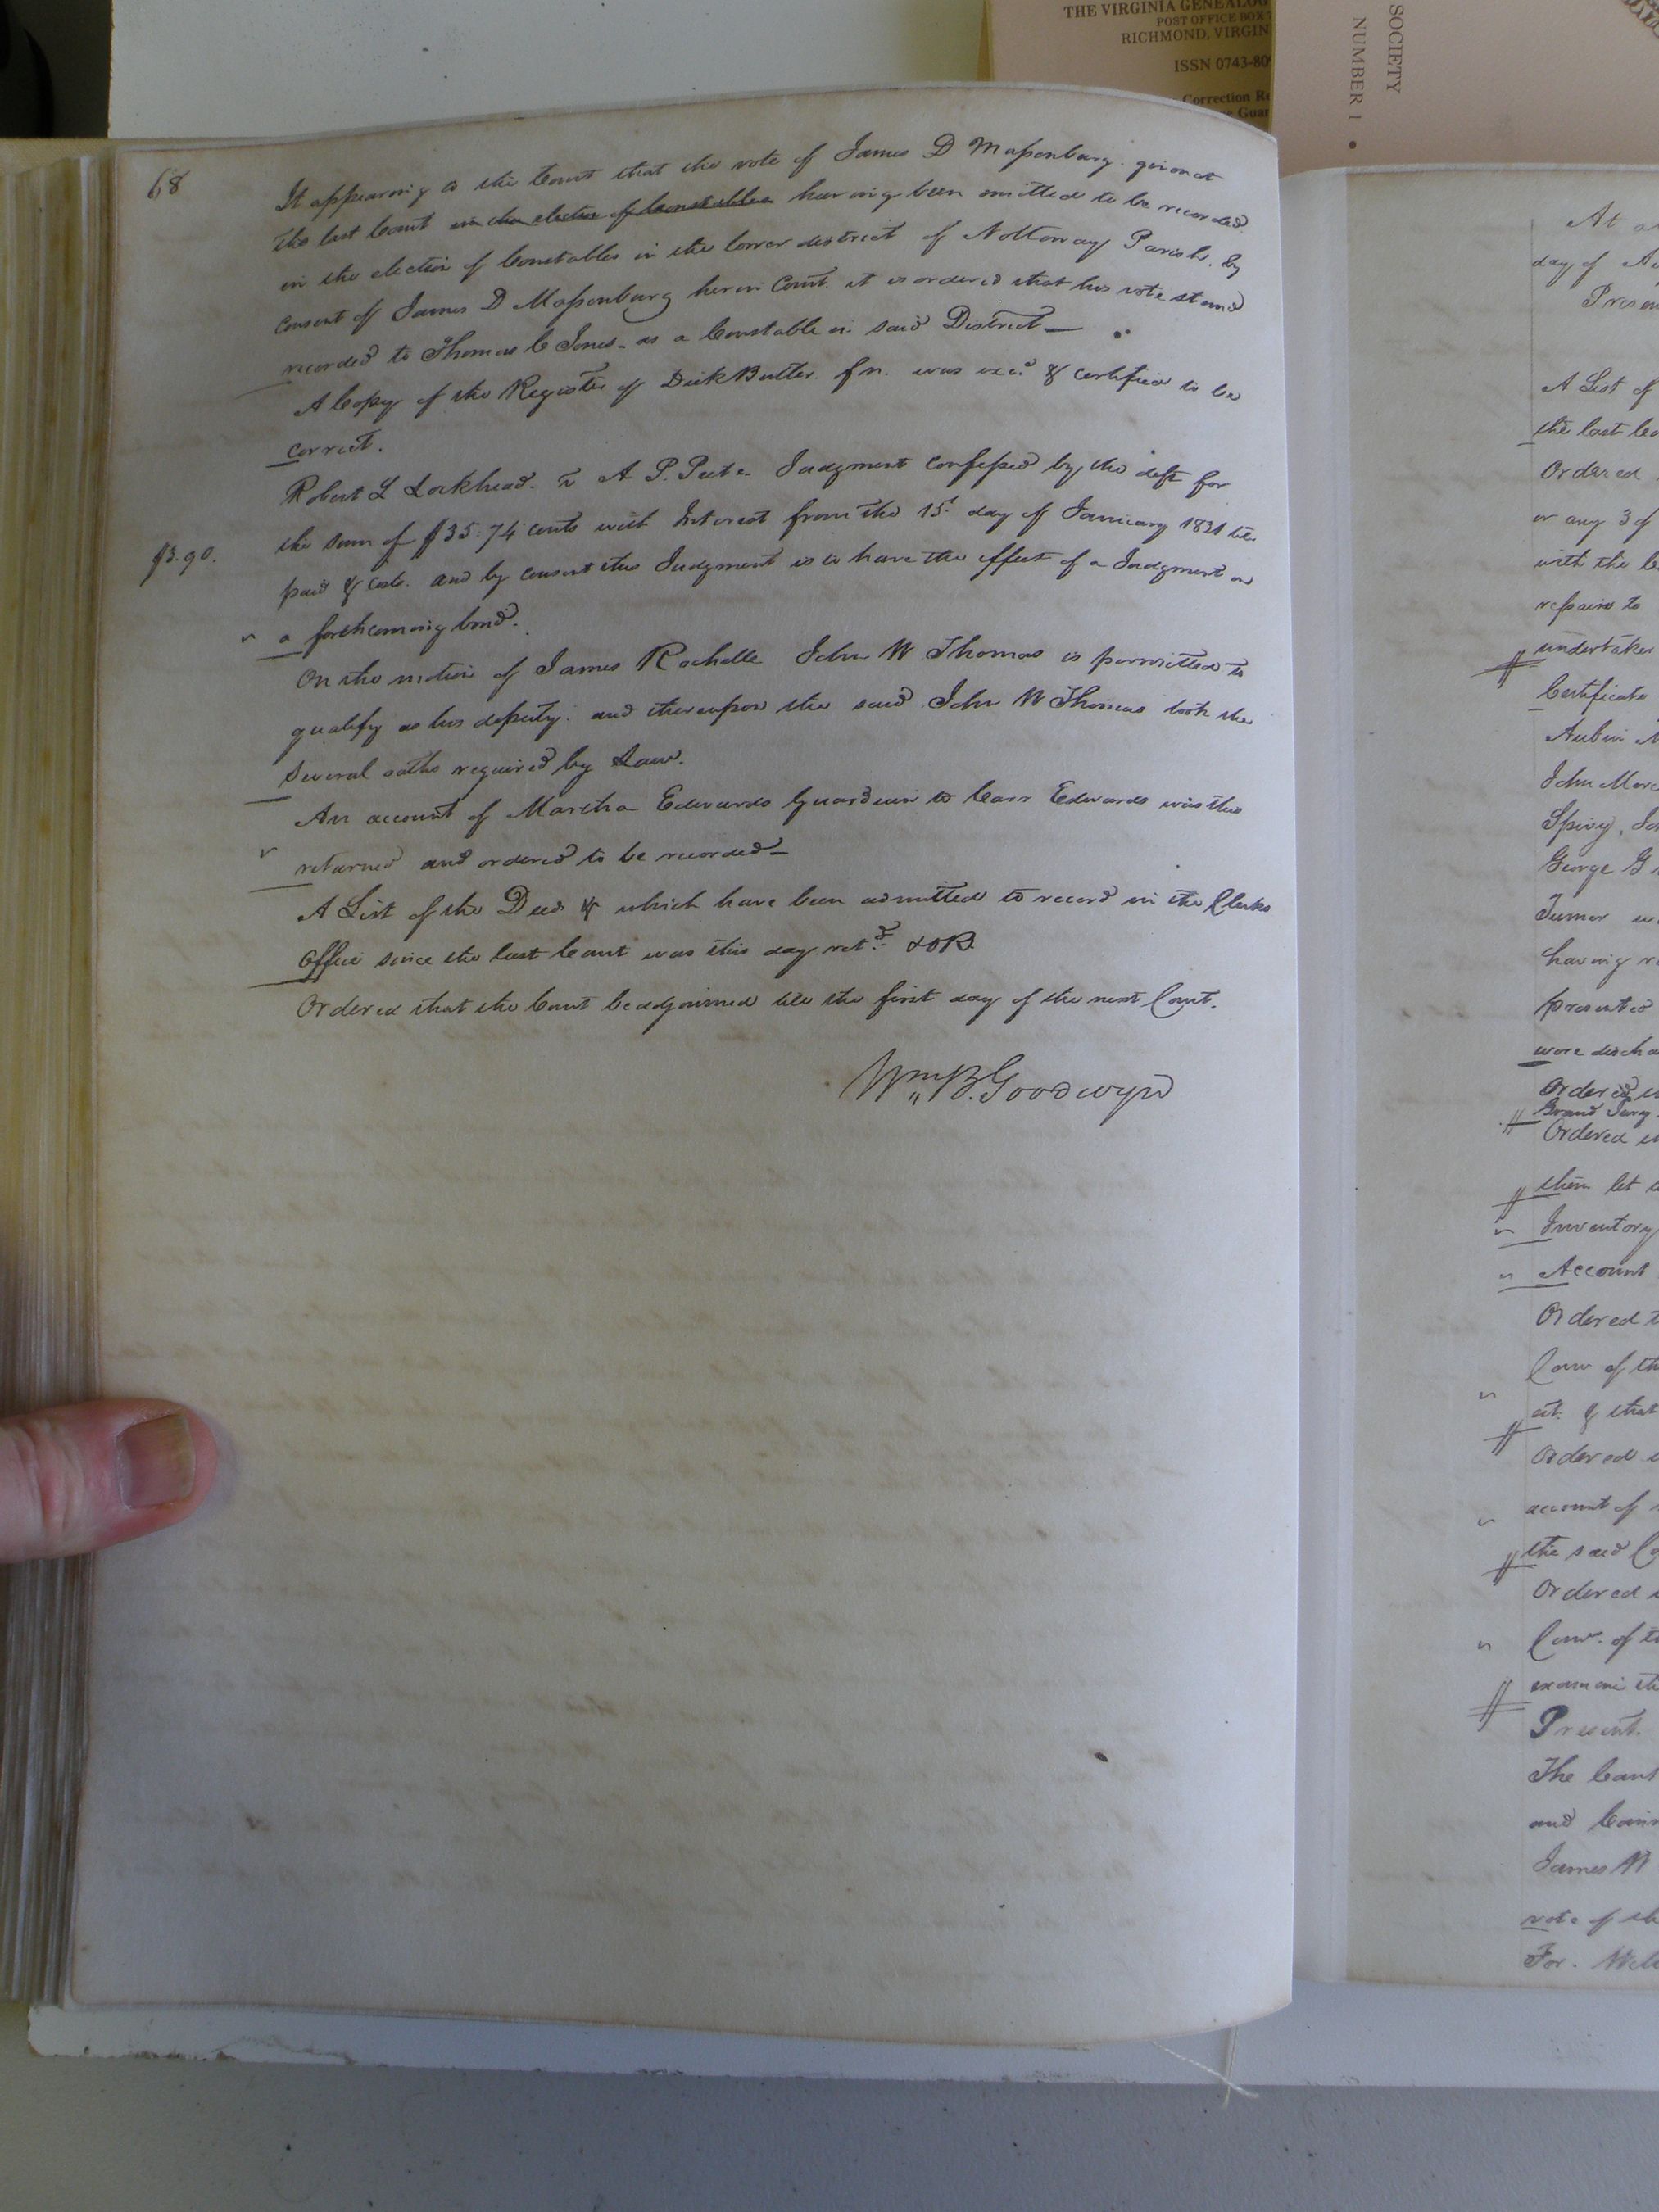 THE VIRGINIA GENEALOG
POST OFFICE BOX
RICHMOND, VIRGIN
ISSN 0743-80
Correction Re
Guar
SOCIETY
NUMBER 1 •
68
It appearing to the Court that the vote of James D Massenburg. given at
the last Court in the election of Constables having been omitted to be recorded
in the election of Constables in the lower district of Nottoway Parish. by
Consent of James D Massenburg here in Court. it is ordered that his vote stand
recorded to Thomas C Jones - as a Constable in said District—
A Copy of the Register of Dick Butler fn. was exd. & certified to be
correct.
Robert L Lockhead. vs A. P. Peete. Judgment confessed by the deft for
the sum of $35.74 cents with Interest from the 15t day of January 1831 til
$3.90.
paid & costs. and by consent this Judgment is to have the effect of a Judgment on
a forthcoming bond.
On the motion of James Rochelle John W Thomas is permitted to
qualify as his deputy. and thereupon the said John W Thomas took the
several oaths required by Law.
An account of Martha Edwards Guardian to Carr Edwards was this
returned and ordered to be recorded—
A List of the Deeds & which have been admitted to record in the Clerks
Office since the last Court was this day retd. & OR.
Ordered that the Court be adjourned till the first day of the next Court.
Wm B. Goodwyn
At a
day of Au
Presen
A List of
the last Co
Ordered
or any 3 of
with the
repairs to
undertaker
Certificate
Aubin
John More
Spivy, Jo
George G
Turner w
having
presented
were discha
Ordered
Grand Jury
Ordered
them let
Inventory
Account
Ordered t
Com of th
est. & that
Ordered
account of
the said Co
Ordered
Com. of t
examine th
Present.
The Court
and
James W
vote of th
For. Will